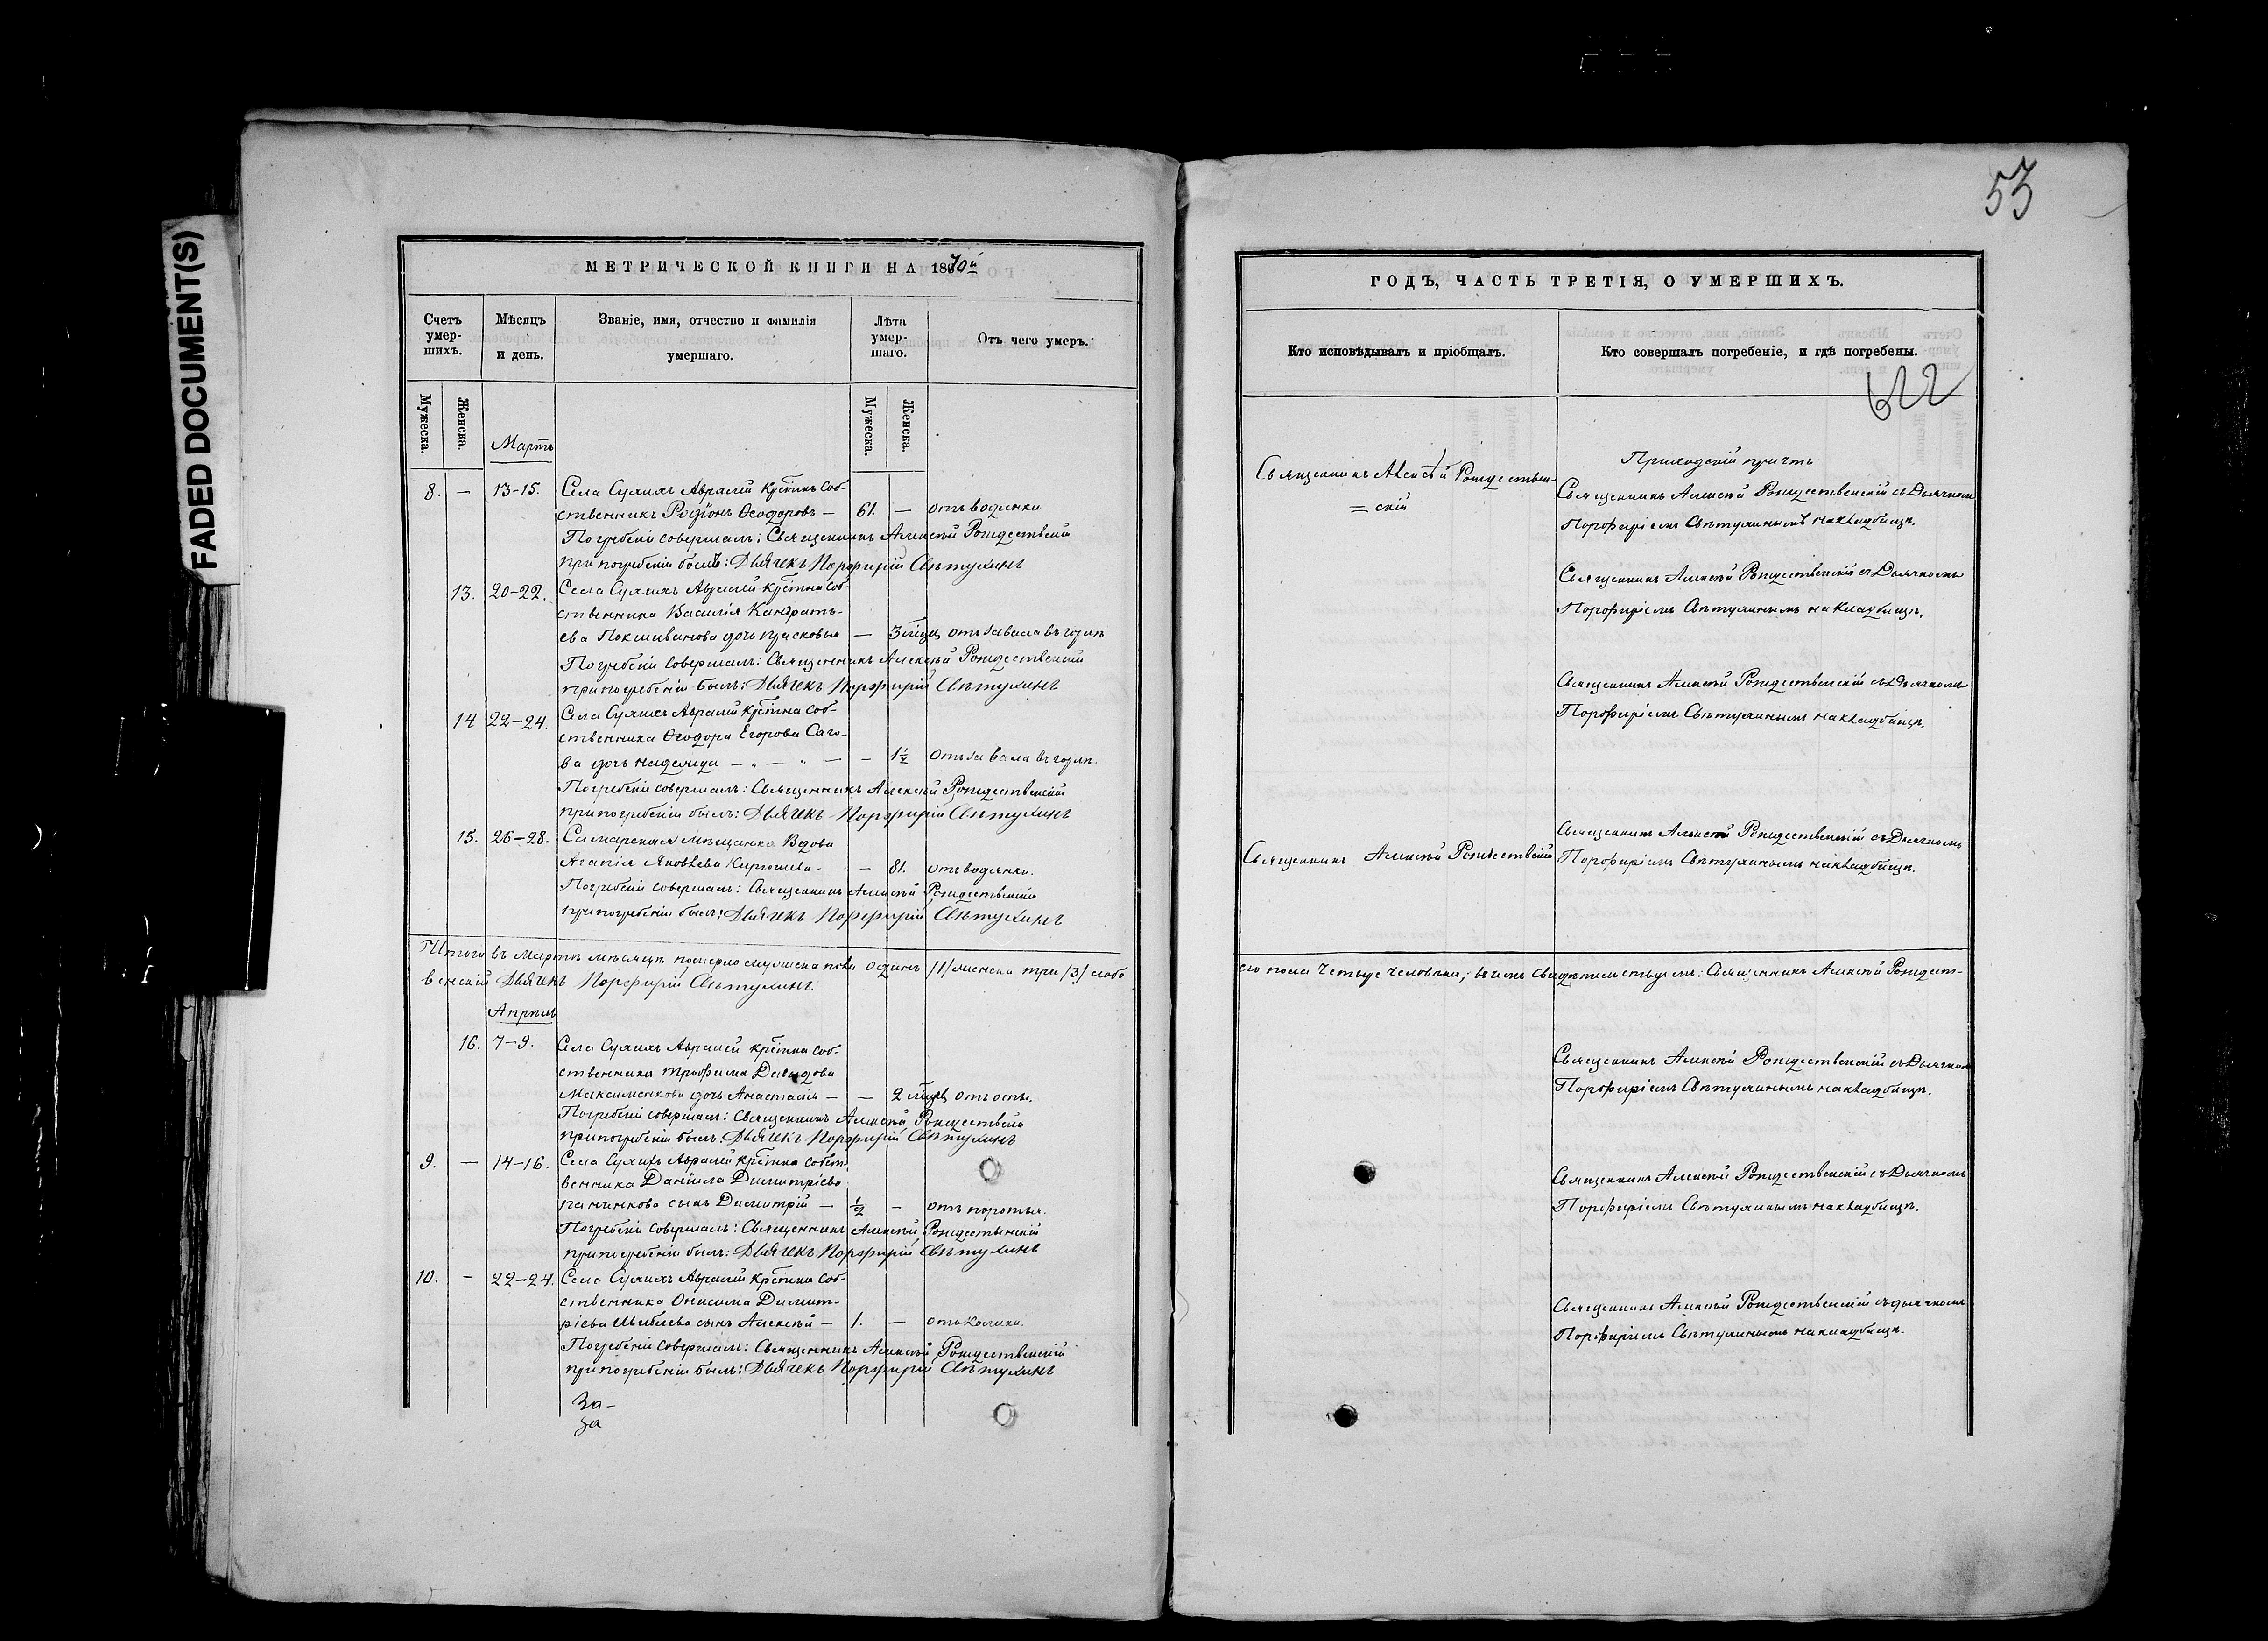 FADED DOCUMENT(S)
МЕТРИЧЕСКОЙ КНИГИ НА 1870й
Счетъ умер-шихъ.
Мѣсяцъ и день.
Званіе, имя, отчество и фамилія умершаго.
Лѣта умер-шаго.
Отъ чего умеръ.
Мужеска.
Женска.
Мужеска.
Женска.
Мартъ
8. — 13-15. Села Сухихъ Авралей Кртнинъ Соб-
ственникъ Родіонъ Ѳеодоровъ — 61. — отъ водянки
Погребеніе совершалъ: Священникъ Алексѣй Рождественскій
при погребеніи былъ: Дьячекъ Порфирій Свѣтухинъ
13. 20-22. Села Сухихъ Авралей кртнина Соб-
ственника Василія Кандрать-
ева дочь Прасковья — 3 мцъ отъ завала въ горлѣ
Погребеніе совершалъ: Священникъ Алексѣй Рождественскій
при погребеніи былъ: Дьячекъ Порфирій Свѣтухинъ
14 22-24. Села Сухихъ Авралей кртнина соб-
ственника Ѳеодора Егорова Саго-
ва дочь Надежда — „ — „ — — 1½ Отъ завала въ горлѣ.
Погребеніе совершалъ: Священникъ Алексѣй Рождественскій
при погребеніи былъ: Дьячекъ Порфирій Свѣтухинъ
15. 26-28. Самарская мѣщанка Вдова
Агапія Яковлева — 81. отъ водянки.
Погребеніе совершалъ: Священникъ Алексѣй Рождественскій
при погребеніи былъ: Дьячекъ Порфирій Свѣтухинъ
Итого въ Мартѣ мѣсяцѣ померло мужеска пола одинъ /1/ женска три /3/ обо
венскій Дьячекъ Порфирій Свѣтухинъ.
Апрѣль
16. 7-9. Села Сухихъ Авралей кртнина соб-
ственника Трофима Давыдова
Максименкова дочь Анастасія — — 2 мцъ отъ оспы.
Погребеніе совершалъ: Священникъ Алексѣй Рождественскій
при погребеніи былъ: Дьячекъ Порфирій Свѣтухинъ
9. — 14-16. Села Сухихъ Авралей кртнина Собст-
венника Даніила Димитріева
сынъ Димитрій — ½ — отъ
Погребеніе совершалъ: Священникъ Алексѣй Рождественскій
при погребеніи былъ: Дьячекъ Порфирій Свѣтухинъ
10. — 22-24. Села Сухихъ Авралей кртнина Соб-
ственника Онисима Димит-
ріева сынъ Алексѣй — 1. — отъ
Погребеніе совершалъ: Священникъ Алексѣй Рождественскій
при погребеніи былъ: Дьячекъ Порфирій Свѣтухинъ
За-
За
53
ГОДЪ, ЧАСТЬ ТРЕТІЯ, О УМЕРШИХЪ.
Кто исповѣдывалъ и пріобщалъ.
Кто совершалъ погребеніе, и гдѣ погребены.
622
Приходскій причтъ
Священникъ Алексѣй Рождествен-
= скій
Священникъ Алексѣй Рождественскій съ Дьячкомъ
Порфиріемъ Свѣтухинымъ на кладбищѣ.
Священникъ Алексѣй Рождественскій съ Дьячкомъ
Порфиріемъ Свѣтухинымъ на кладбищѣ.
Священникъ Алексѣй Рождественскій съ Дьячкомъ
Порфиріемъ Свѣтухинымъ на кладбищѣ.
Священникъ Алексѣй Рождественскій
Священникъ Алексѣй Рождественскій съ Дьячкомъ
Порфиріемъ Свѣтухинымъ на кладбищѣ.
его пола четыре человѣка; въ чемъ свидѣтельствуемъ: Священникъ Алексѣй Рождест-
Священникъ Алексѣй Рождественскій съ Дьячкомъ
Порфиріемъ Свѣтухинымъ на кладбищѣ.
Священникъ Алексѣй Рождественскій съ Дьячкомъ
Порфиріемъ Свѣтухинымъ на кладбищѣ.
Священникъ Алексѣй Рождественскій съ дьячкомъ
Порфиріемъ Свѣтухинымъ на кладбищѣ.